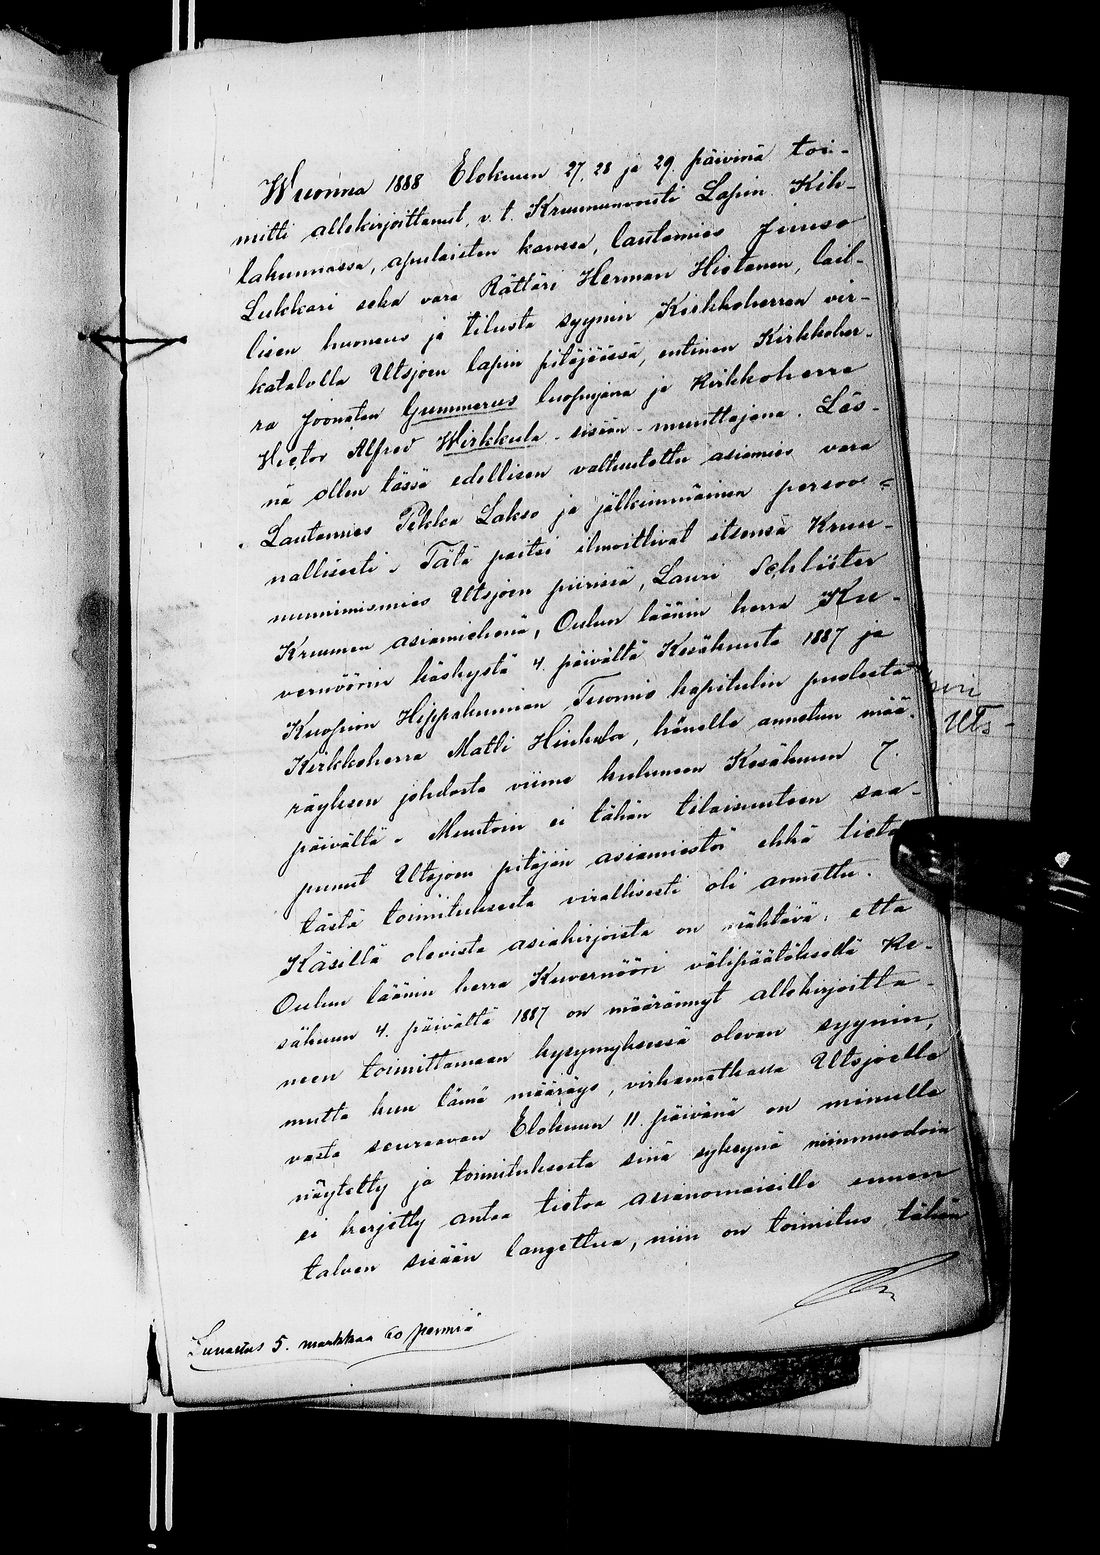 Wuonna 1888 Elokuun 27, 28 ja 29 päivinä toi-
mitti allekirjoittanut, v. t. Kruununvouti Lapin Kih-
lakunnassa, apulaisten kanssa, lautamies Juuso
Lukkari sekä vara Rättäri Herman Hietanen, lail-
lisen huoneus ja tilusta syynin Kirkkoherran vir-
katalolla Utsjoen lapin pitäjäässä, entinen Kirkkoher-
ra Joonatan Gummerus luopujana ja Kirkkoherra
Hector Alfred Wirkkula sisään-muuttajana. Läs-
nä ollen tässä edellisen valtuutettu asiamies vara
Lautamies Pekka Lakso ja jälkimmäinen persoo-
nallisesti. Tätä paitsi ilmoittivat itsensä Kruu-
nunnimismies Utsjoen piirissä, Lauri Schlüter
Kruunun asiamiehenä, Oulun läänin herra Ku-
vernöörin käskystä 4. päivältä Kesäkuuta 1887 ja
Kuopion Hiippakunnan Tuomio kapitulin puolesta
Kirkkoherra Matti Hinkula, hänelle annetun mää-
räyksen johdosta viime kuluneen Kesäkuun 7
päivältä. Muutoin ei tähän tilaisuuteen saa-
punut Utsjoen pitäjän asiamiestä ehkä tieto
tästä toimituksesta virallisesti oli annettu.
Käsillä olevista asiakirjoista on nähtävä, että
Oulun läänin herra Kuvernööri välipäätöksellä Ke-
säkuun 4. päivältä 1887 on määrännyt allekirjoitta-
neen toimittamaan kysymyksessä olevan syynin,
mutta kun tämä määräys, virkamatkassa Utsjoella
vasta seuraavan Elokuun 11 päivänä on minulle
näytetty ja toimituksesta sinä syksynä niinmuodoin
ei keritty antaa tietoa asianomaisille ennen
talven sisään langettua, niin on toimitus tähän
Lunastus 5. markkaa 60 penniä
Uts-